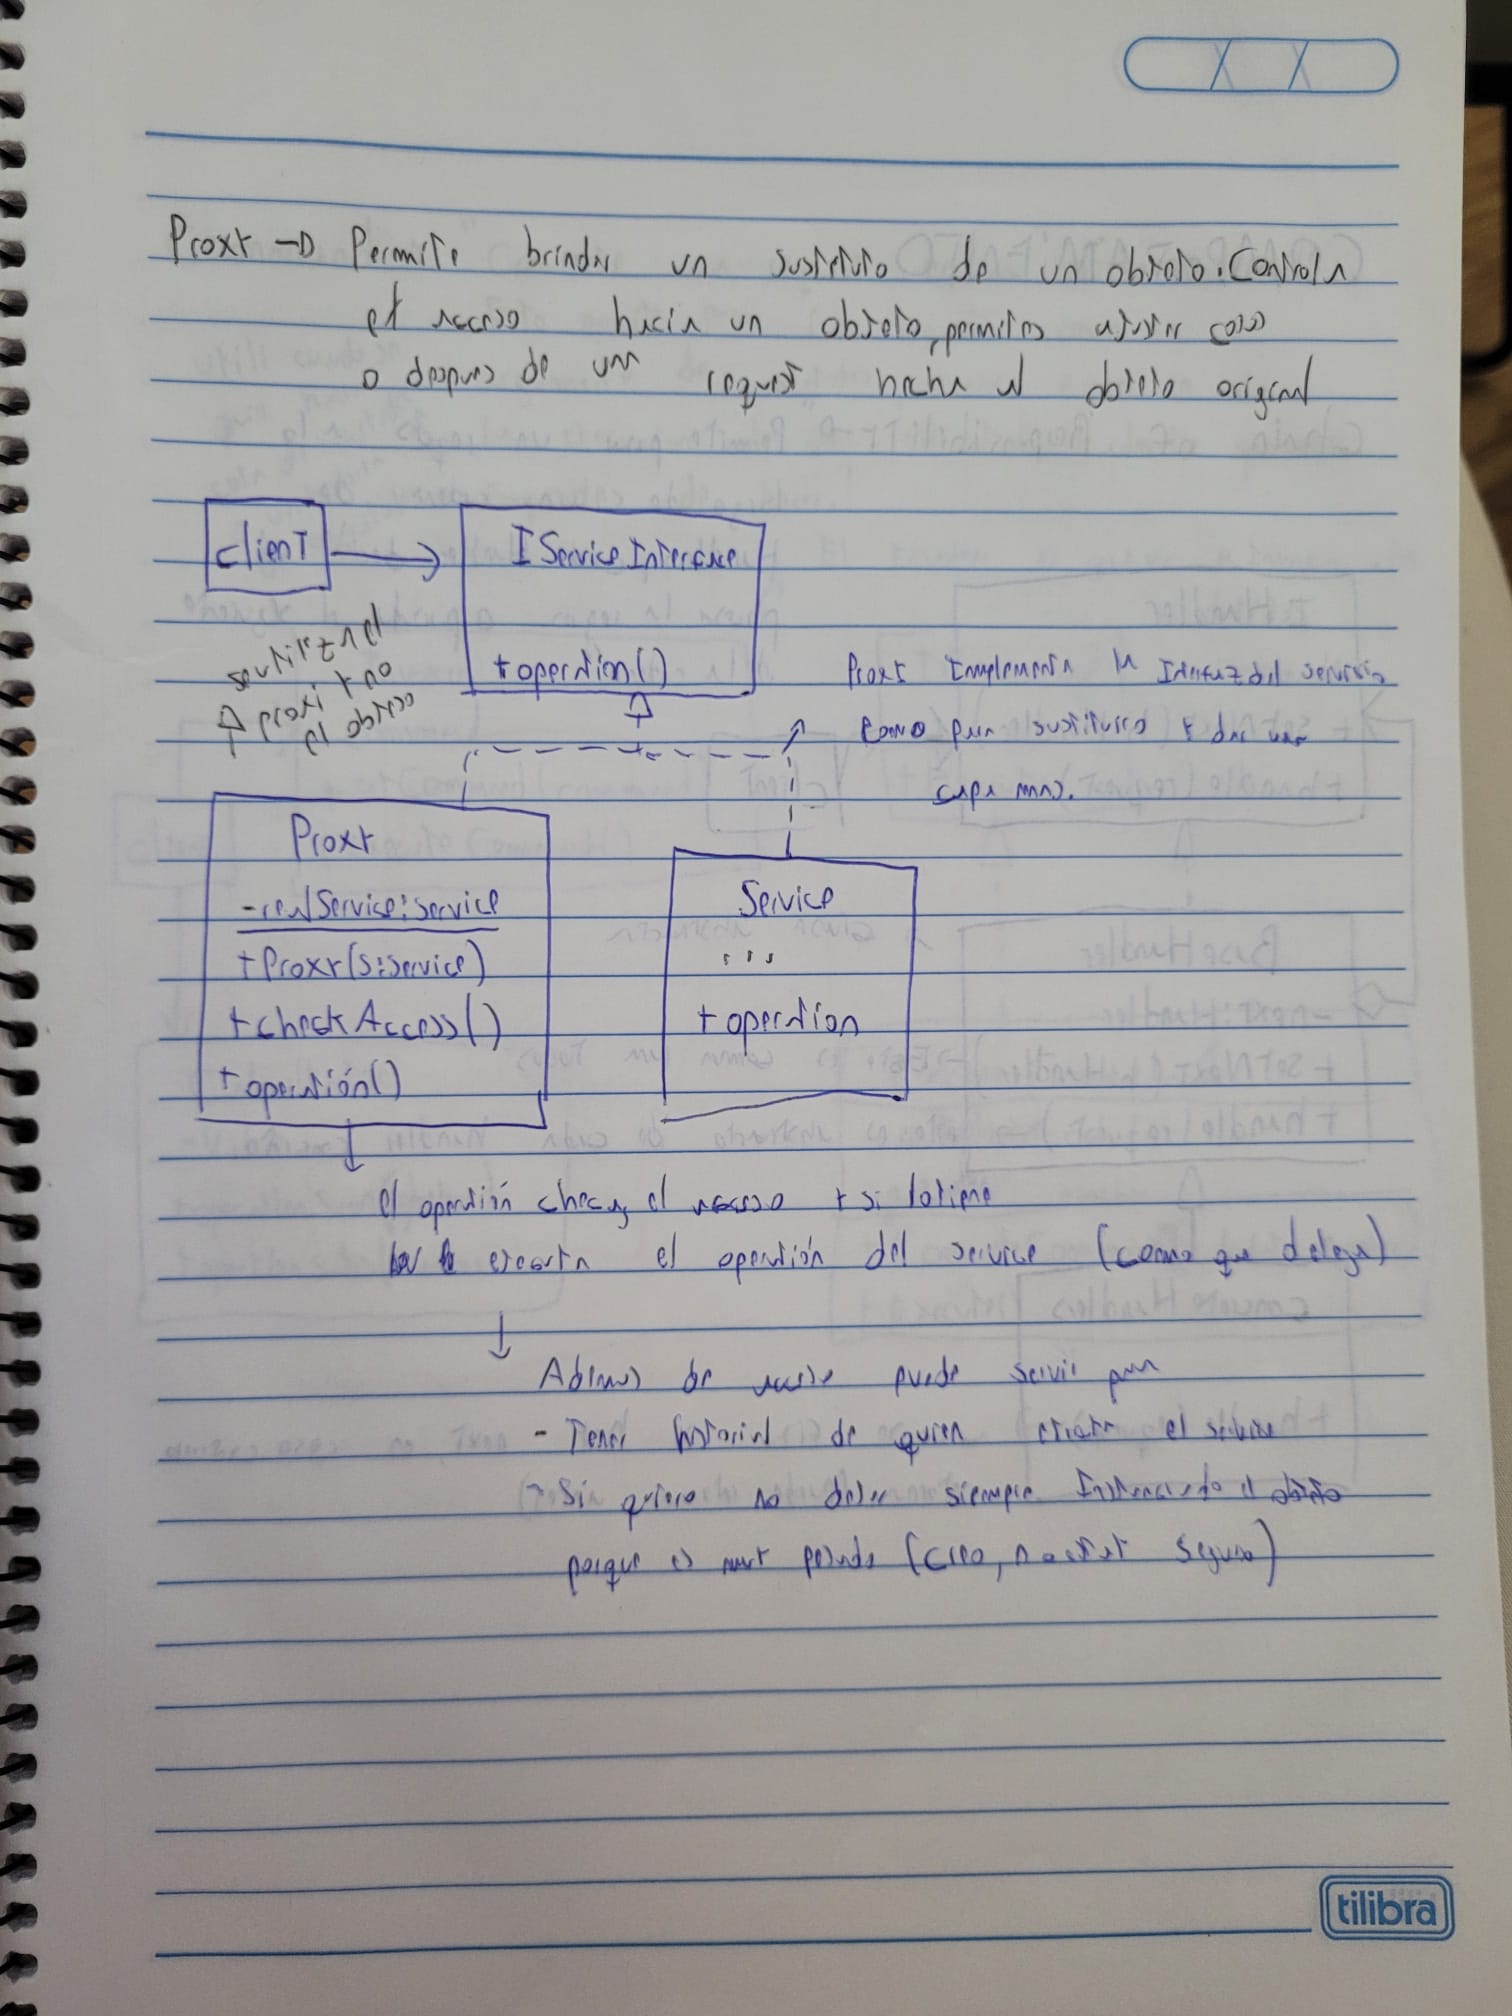 Proxy → Permite brindar un sustituto de un objeto. Controla
el acceso hacia un objeto, permites ajustar cosas
o despues de una request hecha al objeto original
client
IServiceInterface
+ operation()
se utiliza el
proxi y no
el objeto
Proxy Implementa la Interfaz del servicio
como para sustituirlo y dar una
capa mas.
Proxy
- realService: Service
+ Proxy(s: Service)
+ checkAccess()
+ operatión()
Service
...
+ operation
el operatión checa el acceso y si lo tiene
ejecuta el operatión del service (como que delega)
Ademas de puede servir para
- Tener historial de quien el service
- Si quiero no dejar siempre Instanciando el objeto
porque es muy pesado (creo, no estoy seguro)
tilibra